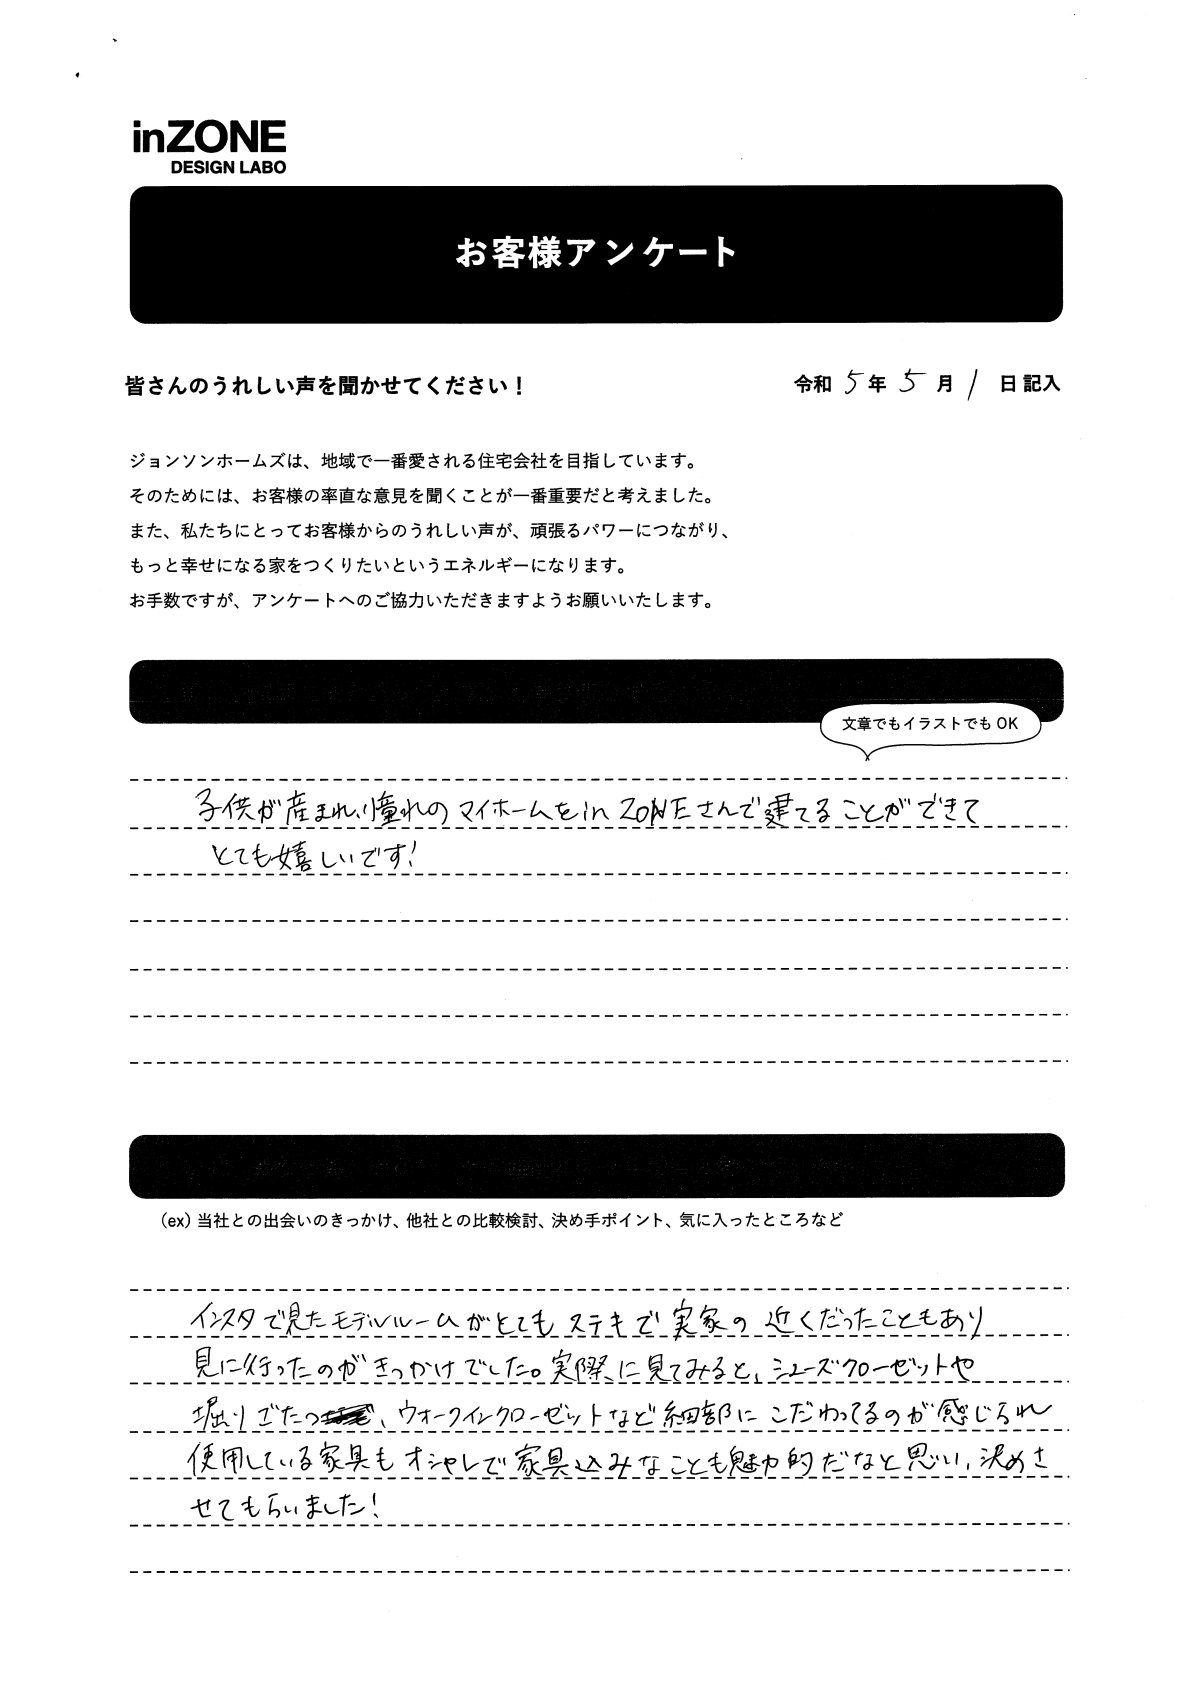 inZONE
DESIGN LABO
お客様アンケート
皆さんのうれしい声を聞かせてください！
令和 5 年 5 月 1 日 記入
ジョンソンホームズは、地域で一番愛される住宅会社を目指しています。
そのためには、お客様の率直な意見を聞くことが一番重要だと考えました。
また、私たちにとってお客様からのうれしい声が、頑張るパワーにつながり、
もっと幸せになる家をつくりたいというエネルギーになります。
お手数ですが、アンケートへのご協力いただきますようお願いいたします。
文章でもイラストでもOK
子供が産まれ、憧れのマイホームをinZONEさんで建てることができて
とても嬉しいです!
（ex）当社との出会いのきっかけ、他社との比較検討、決め手ポイント、気に入ったところなど
インスタで見たモデルルームがとてもステキで実家の近くだったこともあり
見に行ったのがきっかけでした。実際に見てみると、シューズクローゼットや
堀りごたつ、ウォークインクローゼットなど細部にこだわってるのが感じられ
使用している家具もオシャレで家具込みなことも魅力的だなと思い、決めさ
せてもらいました!